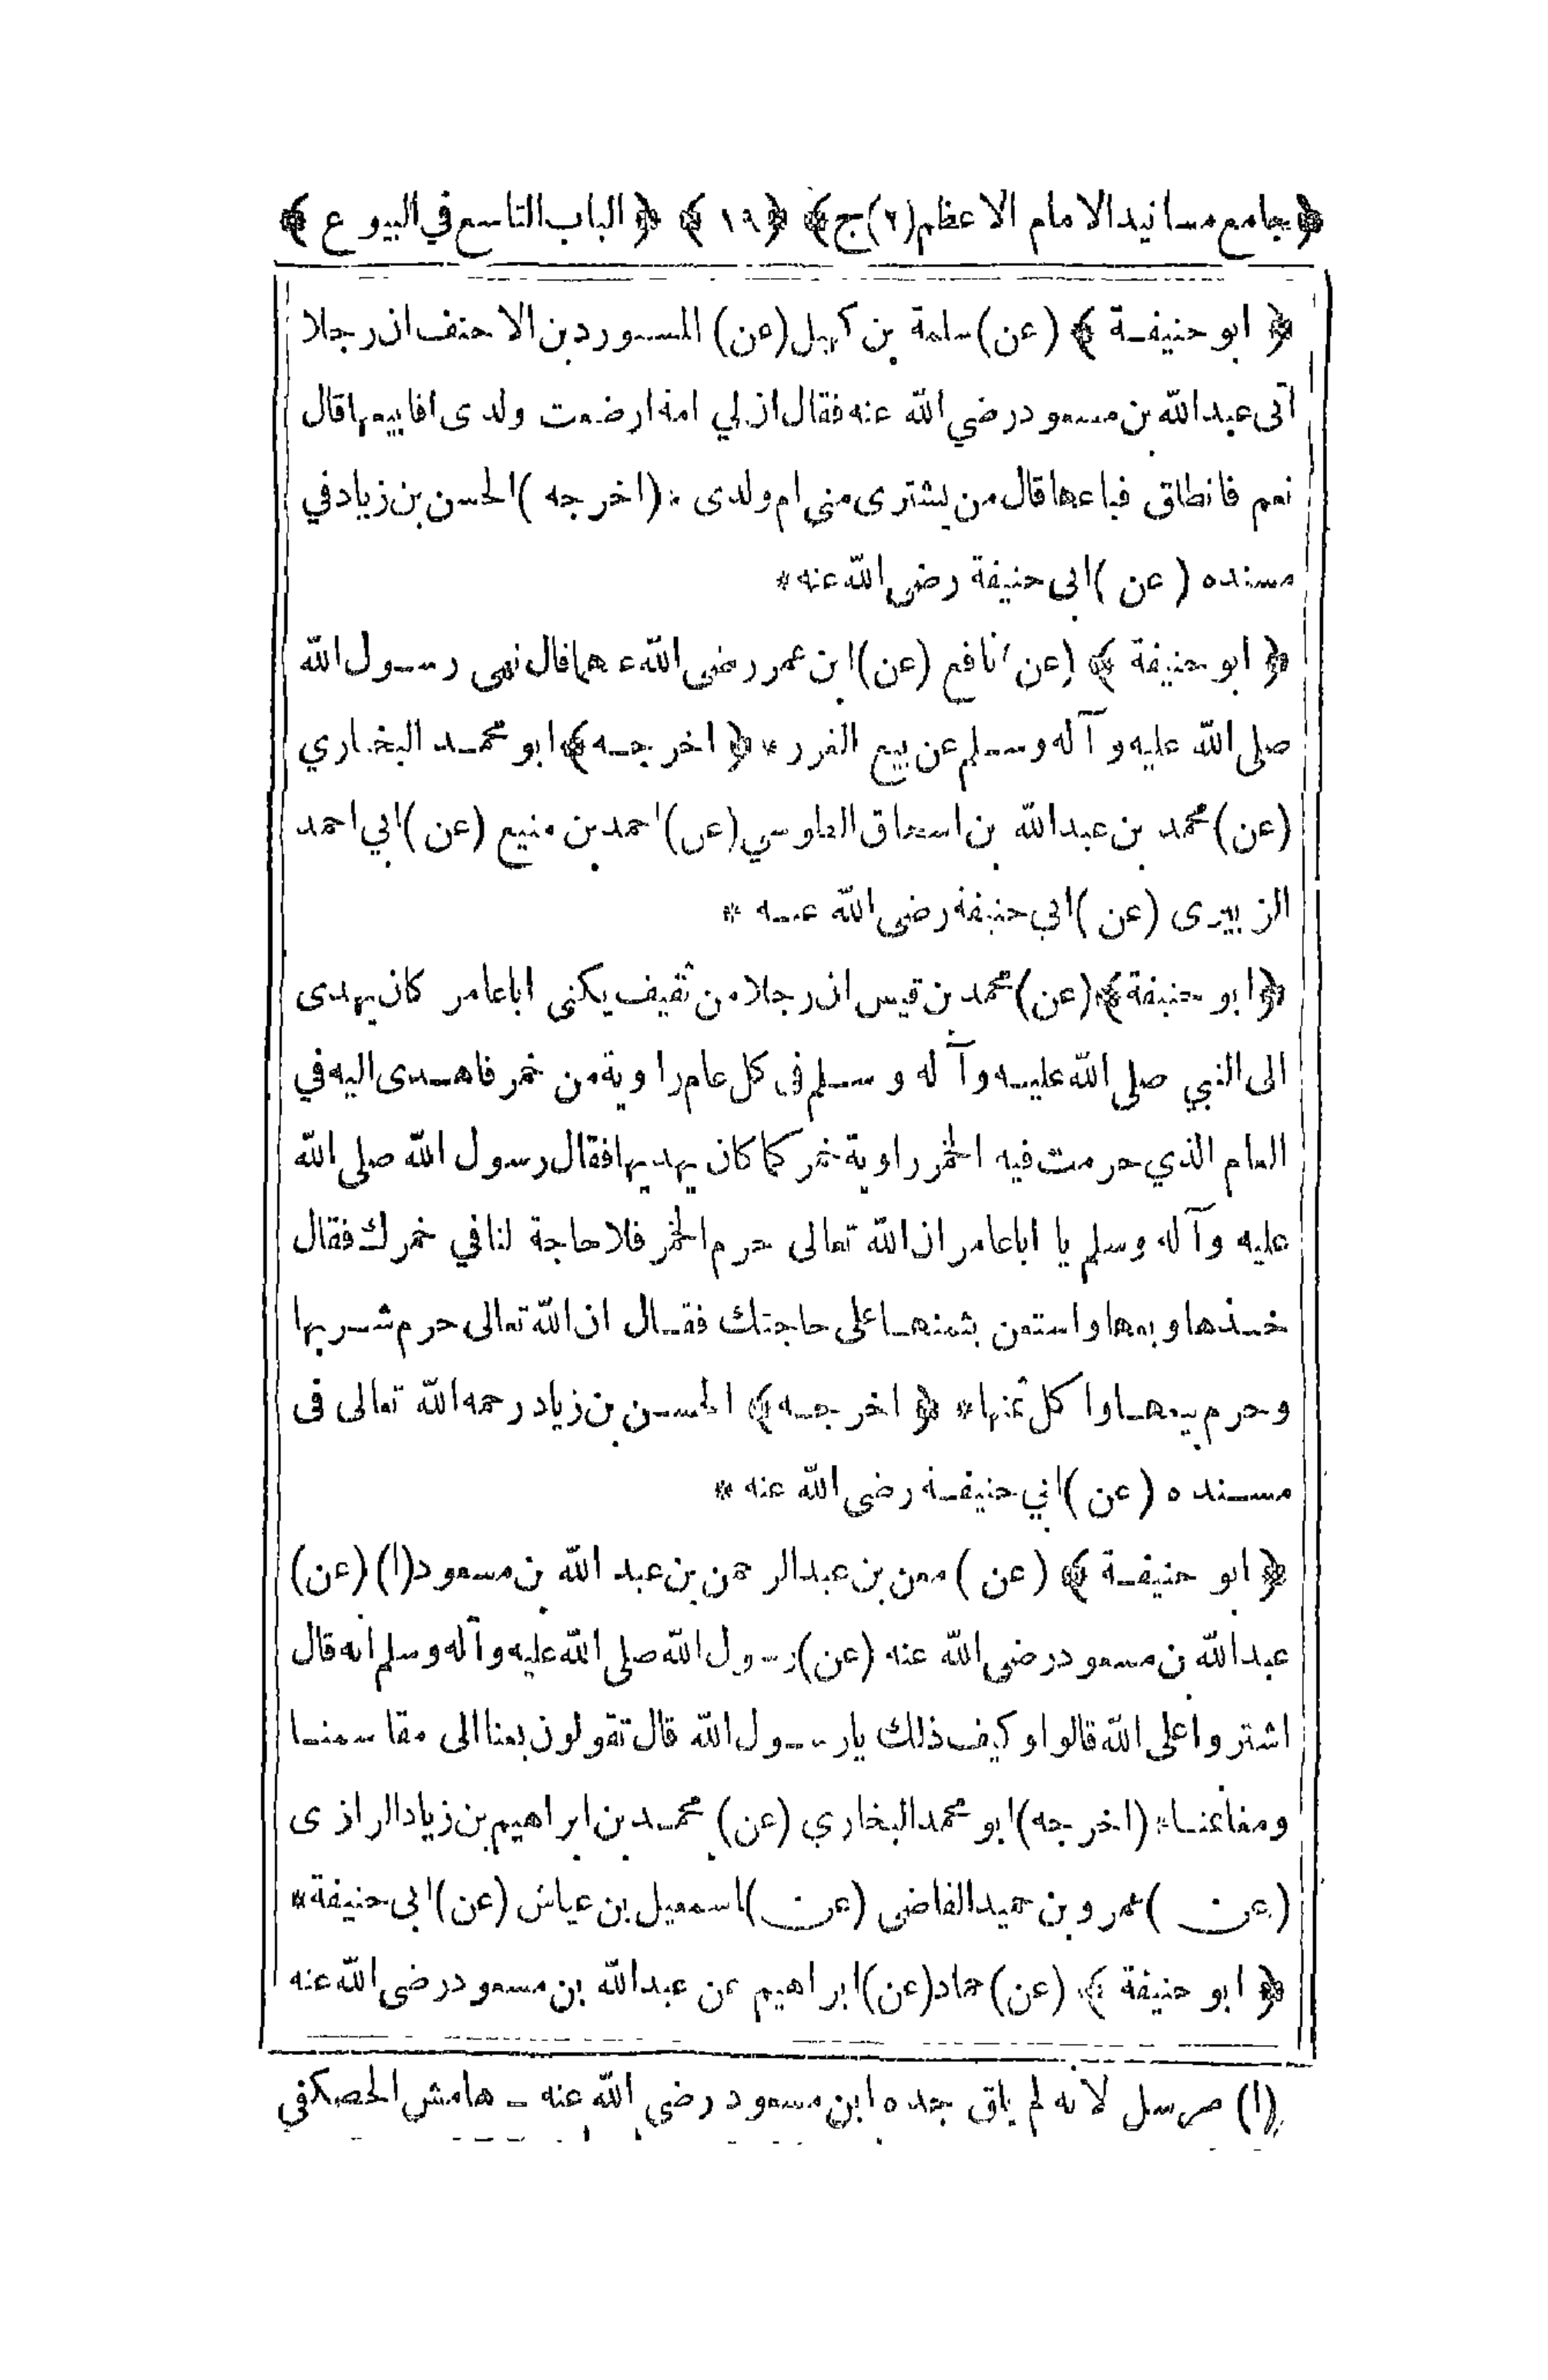 ﴿جامع مسانيد الامام الاعظم (٢) ج﴾ ﴿١٩﴾ ﴿الباب التاسع في البيوع﴾
﴿ ابو حنيفة ﴾ (عن) سلمة بن كهيل (عن) المستورد بن الاحنف ان رجلا
اتى عبدالله بن مسعود رضي الله عنه فقال ان لي امة ارضعت ولدى افابيعها قال
نعم فانطلق فباعها قال من يشترى منى ام ولدى * (اخرجه) الحسن بن زياد في
مسنده (عن) ابى حنيفة رضى الله عنه *
﴿ ابو حنيفة ﴾ (عن) نافع (عن) ابن عمر رضى الله عنهما قال نهى رسول الله
صلى الله عليه وآله وسلم عن بيع الغرر * ﴿ اخرجه ﴾ ابو محمد البخاري
(عن) محمد بن عبدالله بن اسحاق الطوسي (عن) احمد بن منيع (عن) ابي احمد
الزبيرى (عن) ابي حنيفة رضى الله عنه *
﴿ ابو حنيفة ﴾ (عن) محمد بن قيس ان رجلا من ثقيف يكنى اباعامر كان يهدى
الى النبي صلى الله عليه وآله وسلم فى كل عام راوية من خمر فاهدى اليه في
العام الذي حرمت فيه الخمر راوية خمر كما كان يهديها فقال رسول الله صلى الله
عليه وآله وسلم يا اباعامر ان الله تعالى حرم الخمر فلا حاجة لنا في خمرك فقال
خذها وبعها واستعن بثمنها على حاجتك فقال ان الله تعالى حرم شربها
وحرم بيعها واكل ثمنها * ﴿ اخرجه ﴾ الحسن بن زياد رحمه الله تعالى فى
مسنده (عن) ابي حنيفة رضى الله عنه *
﴿ ابو حنيفة ﴾ (عن) معن بن عبدالرحمن بن عبد الله بن مسعود (١) (عن)
عبدالله بن مسعود رضى الله عنه (عن) رسول الله صلى الله عليه وآله وسلم انه قال
اشتروا على الله قالوا وكيف ذلك يارسول الله قال تقولون بعنا الى مقاسمنا
ومغانمنا * (اخرجه) ابو محمد البخاري (عن) محمد بن ابراهيم بن زياد الرازى
(عن) عمرو بن حميد القاضى (عن) اسمعيل بن عياش (عن) ابى حنيفة *
﴿ ابو حنيفة ﴾ (عن) حماد (عن) ابراهيم عن عبدالله بن مسعود رضى الله عنه
(١) مرسل لانه لم يلق جده ابن مسعود رضى الله عنه ـ هامش الحصكفي